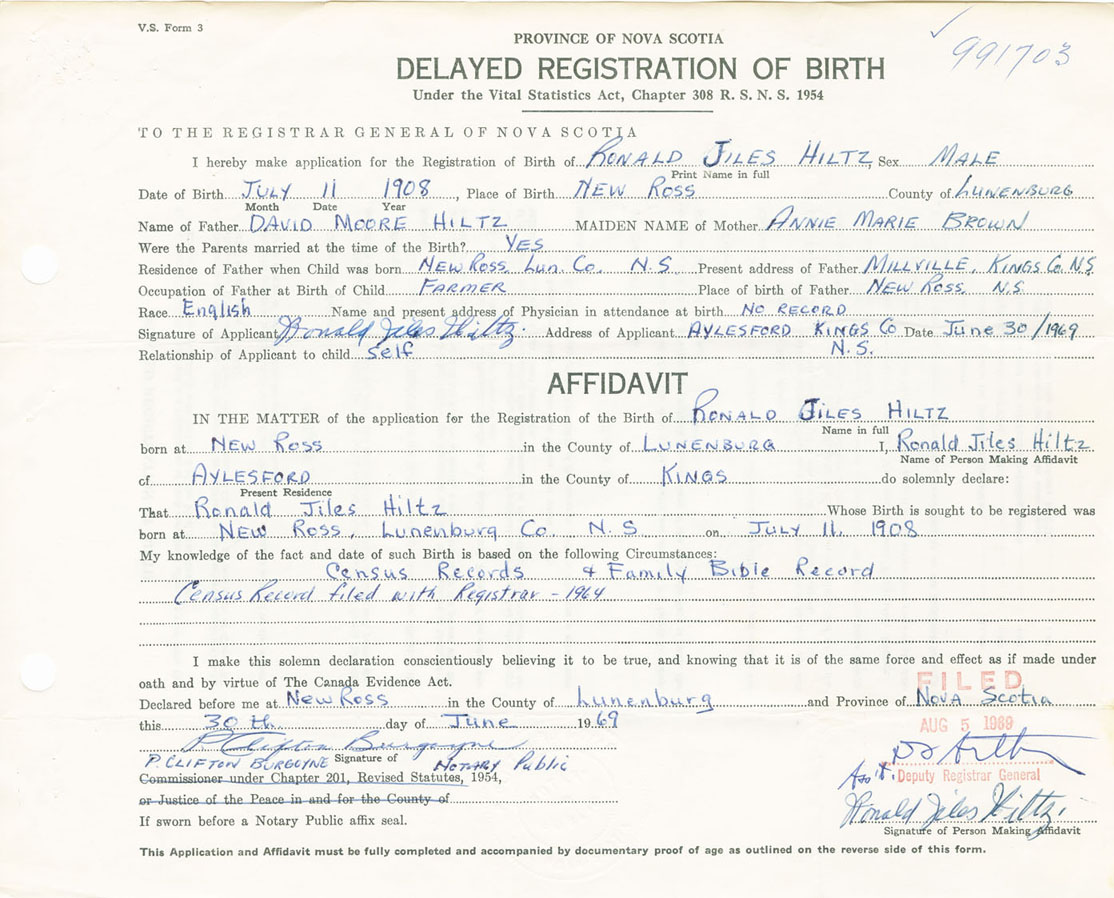 V.S. Form 3
991703
PROVINCE OF NOVA SCOTIA
DELAYED REGISTRATION OF BIRTH
Under the Vital Statistics Act, Chapter 308 R. S. N. S. 1954
TO THE REGISTRAR GENERAL OF NOVA SCOTIA
I hereby make application for the Registration of Birth of RONALD JILES HILTZ, Sex MALE
Print Name in full
Date of Birth JULY 11 1908, Place of Birth NEW ROSS County of LUNENBURG
Month Date Year
Name of Father DAVID MOORE HILTZ MAIDEN NAME of Mother ANNIE MARIE BROWN
Were the Parents married at the time of the Birth? YES
Residence of Father when Child was born NEW ROSS, LUN. CO. N.S Present address of Father MILLVILLE, KINGS CO. N.S.
Occupation of Father at Birth of Child FARMER Place of birth of Father NEW ROSS N.S.
Race English Name and present address of Physician in attendance at birth NO RECORD
Signature of Applicant Ronald Jiles Hiltz. Address of Applicant AYLESFORD KINGS CO Date June 30/1969
N.S.
Relationship of Applicant to child self
AFFIDAVIT
IN THE MATTER of the application for the Registration of the Birth of RONALD JILES HILTZ
Name in full
born at NEW ROSS in the County of LUNENBURG I, Ronald Jiles Hiltz
Name of Person Making Affidavit
of AYLESFORD in the County of KINGS do solemnly declare:
Present Residence
That Ronald Jiles Hiltz Whose Birth is sought to be registered was
born at NEW ROSS, Lunenburg Co. N.S on JULY 11, 1908
My knowledge of the fact and date of such Birth is based on the following Circumstances:
Census Records & Family Bible Record
Census Record filed with Registrar - 1964
I make this solemn declaration conscientiously believing it to be true, and knowing that it is of the same force and effect as if made under
oath and by virtue of The Canada Evidence Act.
FILED
Declared before me at New Ross in the County of Lunenburg and Province of NOVA SCOTIA
this 30th day of June 1969
AUG 5 1969
P Clifton Burgoyne
P. CLIFTON BURGOYNE Signature of NOTARY Public
Ass't. Deputy Registrar General
Commissioner under Chapter 201, Revised Statutes, 1954,
or Justice of the Peace in and for the County of
Ronald Jiles Hiltz.
If sworn before a Notary Public affix seal.
Signature of Person Making Affidavit
This Application and Affidavit must be fully completed and accompanied by documentary proof of age as outlined on the reverse side of this form.